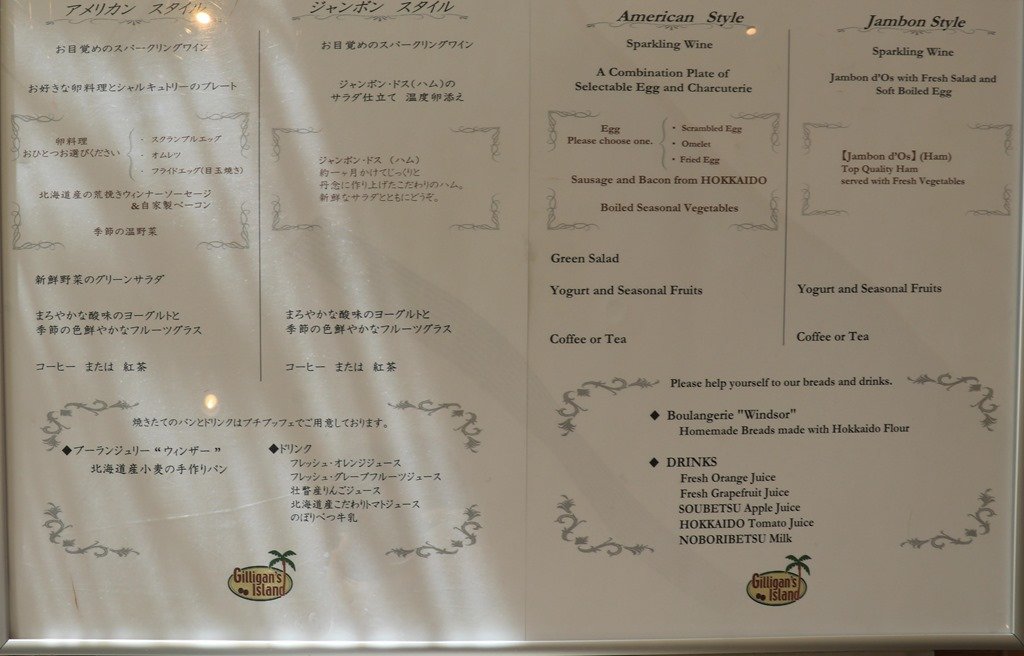 アメリカン スタイル
お目覚めのスパークリングワイン
お好きな卵料理とシャルキュトリーのプレート
卵料理
おひとつお選びください
・ スクランブルエッグ
・ オムレツ
・ フライドエッグ(目玉焼き)
北海道産の荒挽きウィンナーソーセージ
&自家製ベーコン
季節の温野菜
新鮮野菜のグリーンサラダ
まろやかな酸味のヨーグルトと
季節の色鮮やかなフルーツグラス
コーヒー または 紅茶
ジャンボン スタイル
お目覚めのスパークリングワイン
ジャンボン・ドス(ハム)の
サラダ仕立て 温度卵添え
ジャンボン・ドス (ハム)
約一ヶ月かけてじっくりと
丹念に作り上げたこだわりのハム。
新鮮なサラダとともにどうぞ。
まろやかな酸味のヨーグルトと
季節の色鮮やかなフルーツグラス
コーヒー または 紅茶
焼きたてのパンとドリンクはプチブッフェでご用意しております。
◆ブーランジュリー “ウィンザー ”
北海道産小麦の手作りパン
◆ドリンク
フレッシュ・オレンジジュース
フレッシュ・グレープフルーツジュース
壮瞥産りんごジュース
北海道産こだわりトマトジュース
のぼりべつ牛乳
Gilligan's
Island
American Style
Sparkling Wine
A Combination Plate of
Selectable Egg and Charcuterie
Egg
Please choose one.
・ Scrambled Egg
・ Omelet
・ Fried Egg
Sausage and Bacon from HOKKAIDO
Boiled Seasonal Vegetables
Green Salad
Yogurt and Seasonal Fruits
Coffee or Tea
Jambon Style
Sparkling Wine
Jambon d'Os with Fresh Salad and
Soft Boiled Egg
【Jambon d'Os】(Ham)
Top Quality Ham
served with Fresh Vegetables
Yogurt and Seasonal Fruits
Coffee or Tea
Please help yourself to our breads and drinks.
◆ Boulangerie "Windsor"
Homemade Breads made with Hokkaido Flour
◆ DRINKS
Fresh Orange Juice
Fresh Grapefruit Juice
SOUBETSU Apple Juice
HOKKAIDO Tomato Juice
NOBORIBETSU Milk
Gilligan's
Island